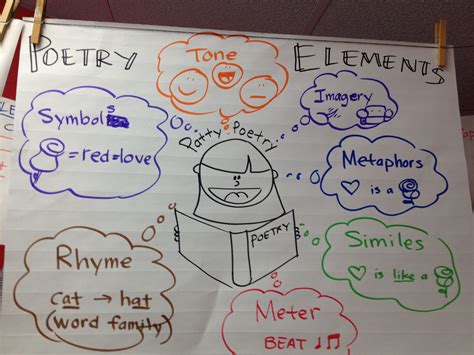 POETRY ELEMENTS
Tone
Imagery
Symbols
= red = love
Patty Poetry
Metaphors
is a
Similes
is like a
POETRY
Rhyme
cat → hat
(word family)
Meter
BEAT ♩♫